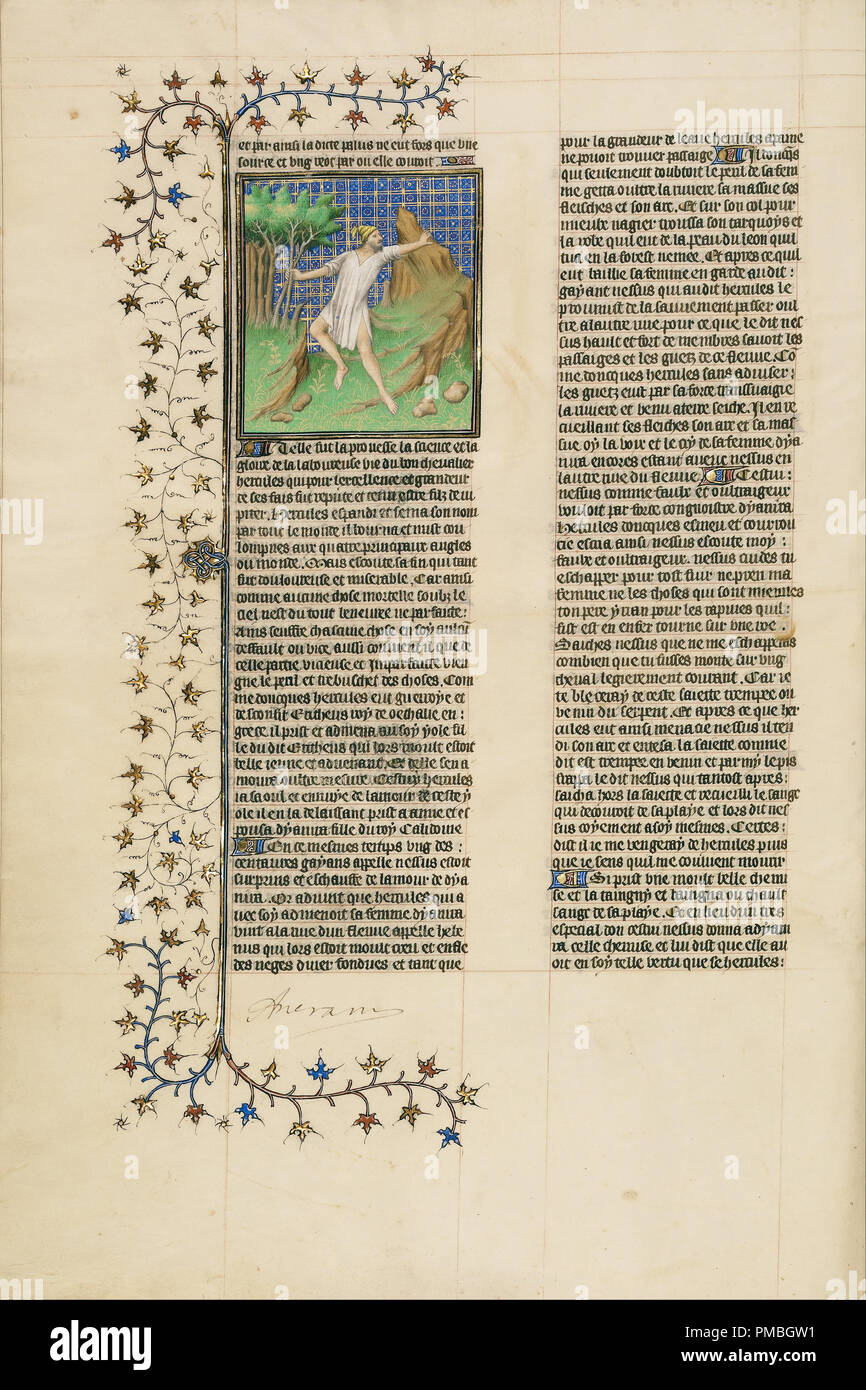 et par ainsi la dicte palus ne eut fors que une
source et ung tout par ou elle couroit
Telle fut la prouesse la science et la
gloire de la laboureuse vie du bon chevalier
hercules qui pour lexcellence et grandeur
de ses fais fut repute et tenu estre filz de iu
piter. Hercules espandi et sema son nom
par tout le monde il bourna et mist cou
lompnes aux quatre principaux angles
du monde. Mais escoute sa fin qui tant
fut douloureuse et miserable. Car ainsi
comme aucune chose mortelle soubz le
ciel nest du tout beneuree ne parfaicte:
Ains seuffre chascune chose en soy aucun
deffault ou vice, aussi convient il que de
celle partie vicieuse et imparfaicte vien
gne le peril et trebuschet des choses. Com
me doncques hercules eut guerroye et
desconfit Ertheus roy de oechalie en:
grece il prist et admena auec soy yole fil
le du dit Ertheus qui lors moult estoit
belle ieune et advenant. Et delle sen a
moura oultre mesure. Cestuy hercules
ia saoul et ennuye de lamour de ceste y
ole il en la delaissant prist a amie et es
pousa dyanira fille du roy Calidoine
En ce mesmes temps ung des:
centaures gayans appelle nessus estoit
surprins et eschauffe de lamour de dya
nira. Or advint que hercules qui a
uec soy admenoit sa femme dyanira
vint a la rive dun fleuve appelle hebe
nus qui lors estoit moult creu et enfle
des neges diver fondues et tant que
pour la grandeur de leaue hercules a paine
ne povoit trouver passaige Il doncqs
qui seulement doubtoit le peril de sa fem
me getta oultre la riviere sa massue ses
fleisches et son arc. Et sur son col pour
mieulx nagier troussa son tarquoys et
la robe quil eut de la peau du leon quil
tua en la forest nemee. Et apres ce quil
eut baille sa femme en garde au dit:
gayant nessus qui au dit hercules le
promist de la sauvement passer oul
tre a lautre rive pour ce que le dit nes
sus hault et fort de membres savoit les
passaiges et les guez de ce fleuve. Co
me doncques hercules sans adviser:
les guez eust par sa force transnaigie
la riviere et venu a terre seiche. Il en re
cueillant ses fleiches son arc et sa mas
sue oy la voix et le cry de sa femme dya
nira encores estant avecq nessus en
lautre rive du fleuve Cestui:
nessus comme faulx et oultraigeux
vouloit par force congnoistre dyanira
Hercules doncques esmeu et courrou
cie escria ainsi nessus escoute moy:
faulx et oultraigeux. nessus cuides tu
eschapper pour tost fuir ne pren ma
femme ne les choses qui sont miennes
ton pere yxian pour les rapines quil:
fist est en enfer tourne sur une roe.
Saiches nessus que ne me eschapperas
combien que tu fusses monte sur ung
cheval legierement courant. Car ie
te bleceray de ceste saiette trempee ou
venin du serpent. Et apres ce que her
cules eut ainsi menacie nessus il ten
di son arc et entesa la saiette comme
dit est trempee en venin et parmy le pis
frappa le dit nessus qui tantost apres:
saicha hors la saiette et recueilli le sange
qui decouroit de sa playe et lors dit nes
sus coyement a soy mesmes. Certes:
dist il ie me vengeray de hercules puis
que ie sens quil me convient mourir
Si prist une moult belle chemi
se et la taingny et baingna ou chault
sange de sa playe. Et en lieu dun tres
especial don cestui nessus donna a dyani
ra celle chemise et lui dist que elle au
oit en soy telle vertu que se hercules:
alamy
alamy
www.alamy.com
Image ID: PMBGW1